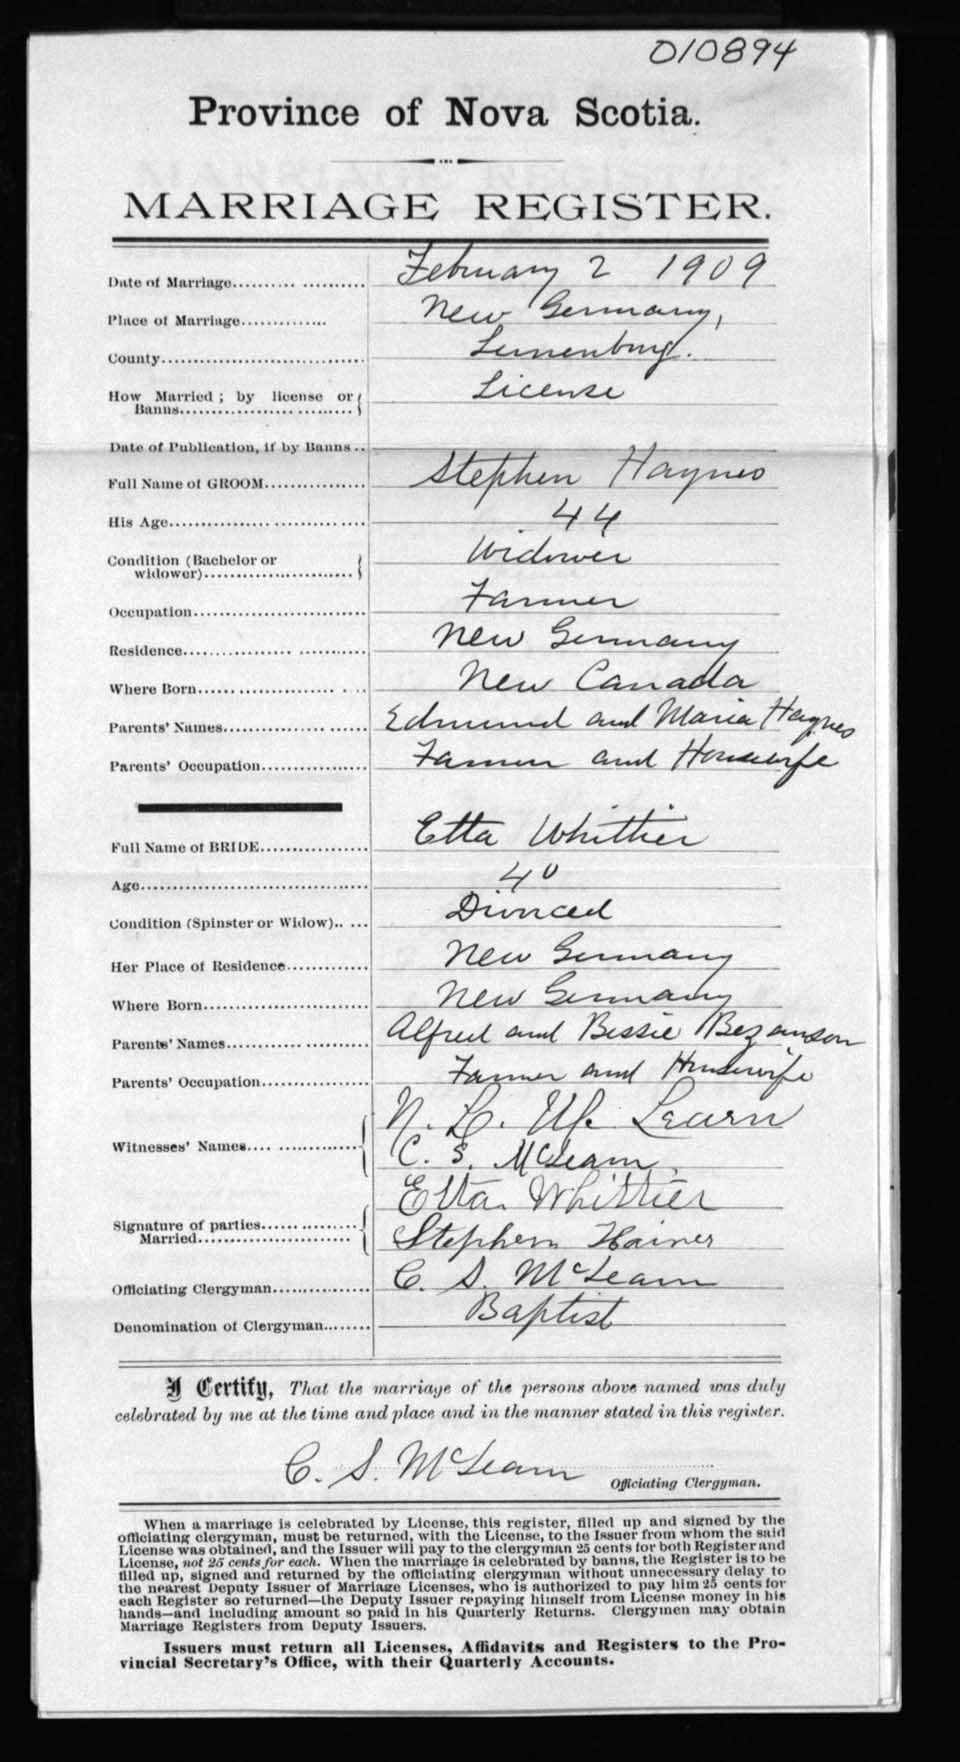 010894
Province of Nova Scotia.
MARRIAGE REGISTER.
Date of Marriage............ February 2 1909
Place of Marriage............ New Germany,
County............ Lunenburg.
How Married ; by license or
Banns............ License
Date of Publication, if by Banns ..
Full Name of GROOM............ Stephen Haynes
His Age............ 44
Condition (Bachelor or
widower)............ Widower
Occupation............ Farmer
Residence............ New Germany
Where Born............ New Canada
Parents' Names............ Edmund and Maria Haynes
Parents' Occupation............ Farmer and Housewife
Full Name of BRIDE............ Etta Whittier
Age............ 40
Condition (Spinster or Widow)..... Divorced
Her Place of Residence............ New Germany
Where Born............ New Germany
Parents' Names............ Alfred and Bessie Bezanson
Parents' Occupation............ Farmer and Housewife
Witnesses' Names............ Learn
C. S. McLearn
Etta Whittier
Signature of parties
Married............ Stephen Hainer
Officiating Clergyman............ C. S. McLearn
Denomination of Clergyman........ Baptist
I Certify, That the marriage of the persons above named was duly
celebrated by me at the time and place and in the manner stated in this register.
C. S. McLearn
Officiating Clergyman.
When a marriage is celebrated by License, this register, filled up and signed by the
officiating clergyman, must be returned, with the License, to the Issuer from whom the said
License was obtained, and the Issuer will pay to the clergyman 25 cents for both Register and
License, not 25 cents for each. When the marriage is celebrated by banns, the Register is to be
filled up, signed and returned by the officiating clergyman without unnecessary delay to
the nearest Deputy Issuer of Marriage Licenses, who is authorized to pay him 25 cents for
each Register so returned—the Deputy Issuer repaying himself from License money in his
hands—and including amount so paid in his Quarterly Returns. Clergymen may obtain
Marriage Registers from Deputy Issuers.
Issuers must return all Licenses, Affidavits and Registers to the Pro-
vincial Secretary's Office, with their Quarterly Accounts.